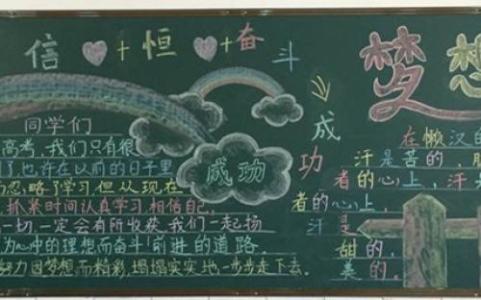 信♥+恒♥+奋斗
成功
梦想
同学们
高考,我们只有很
了,也许在以前的日子里
忽略了学习,但从现在
抓紧时间认真学习,相信自己,
一切一定会有所收获,我们一起扬
为心中的理想而奋斗!前进的道路
努力因梦想而精彩,塌塌实实地一步步走下去。
成功
在懒汉的
汗是苦的,
者的心上,汗是
者的心上,
汗是
甜的,
美的。